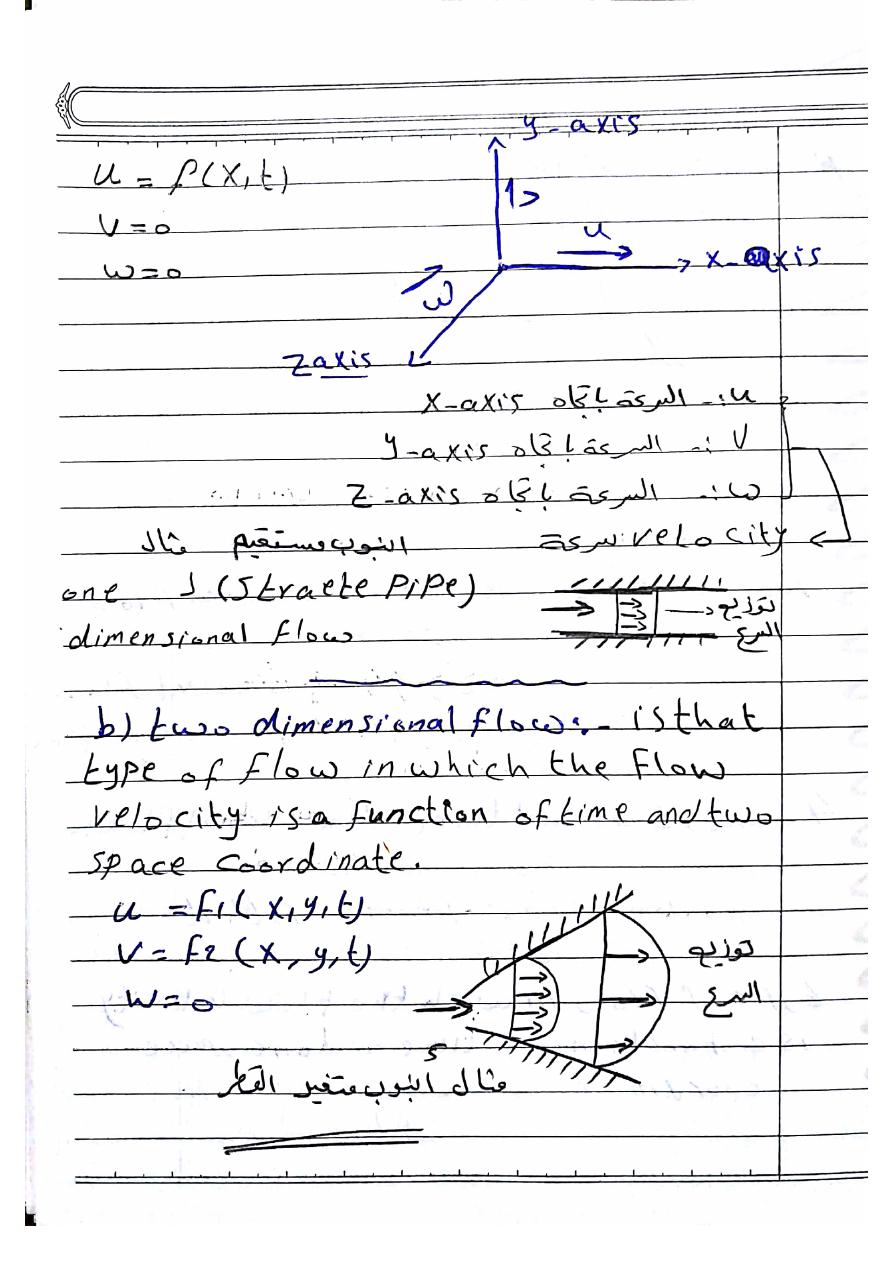 y-axis
u = f(x,t)
v
v=0
u
w=0
x-axis
w
z axis
u:- السرعة باتجاه x-axis
v :- السرعة باتجاه y-axis
w:- السرعة باتجاه z-axis
velocity: سرعة انبوب مستقيم مثال
(Straete PiPe) ل one
dimensional flow
توزيع
السرع
b) two dimensional flow:- is that
type of flow in which the flow
velocity is a function of time and two
space coordinate.
u = f1( x,y,t)
v = f2 (x, y,t)
w=0
توزيع
السرع
مثال انبوب متغير القطر